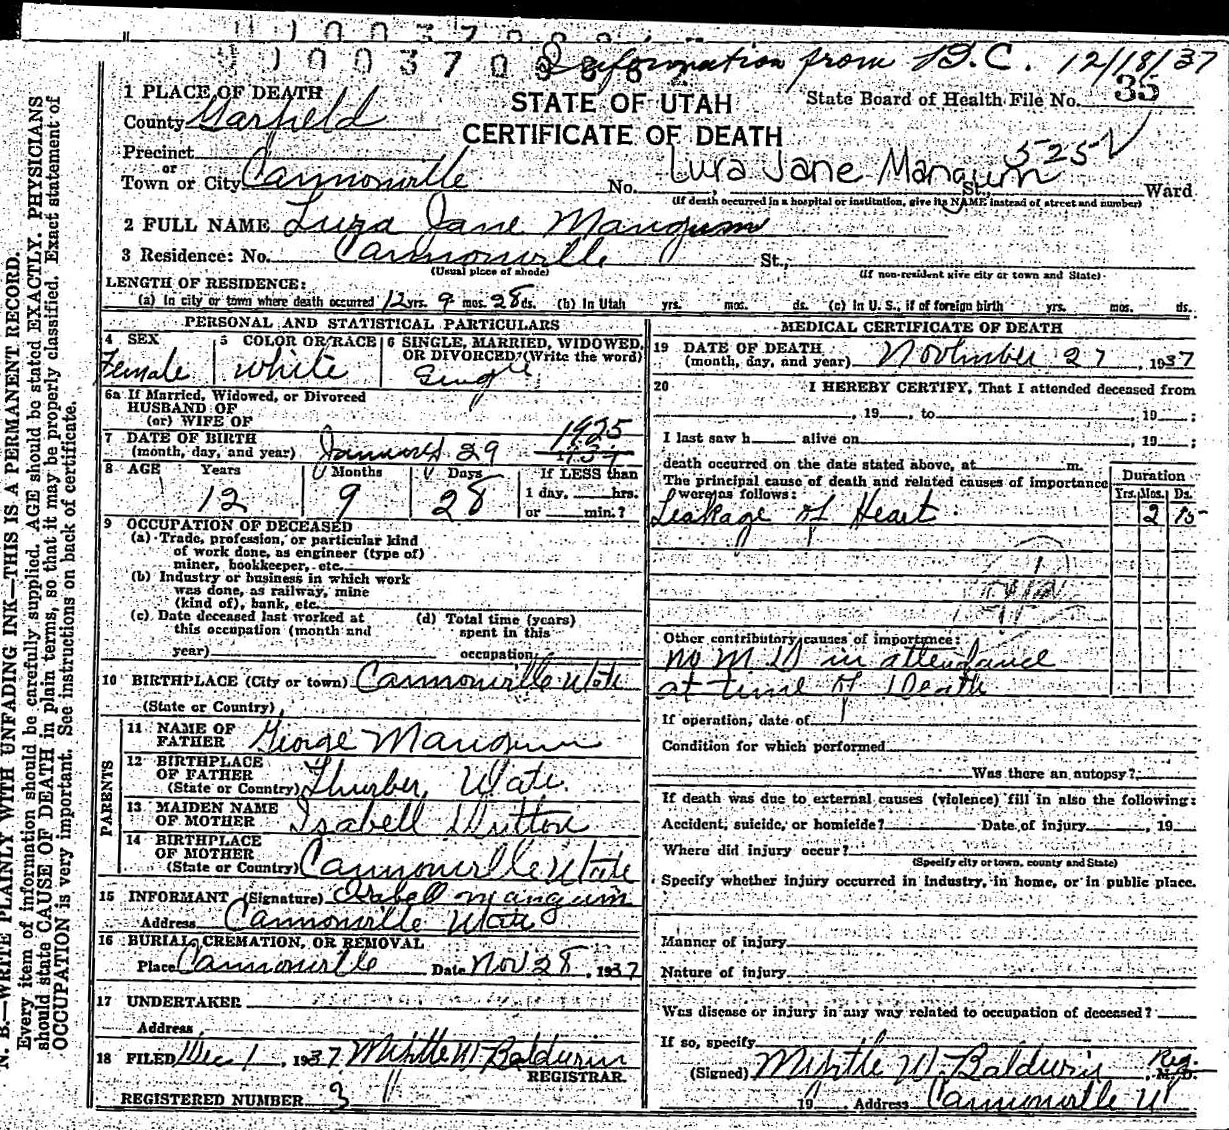 1 0 0 3 7 0
Information from B.C. 12/18/37
1 PLACE OF DEATH
STATE OF UTAH
State Board of Health File No. 35
County Garfield
CERTIFICATE OF DEATH
5252 ✓
Precinct
Lura Jane Mangum
or
Town or City Cannonville No. , St., Ward
(If death occurred in a hospital or institution, give its NAME instead of street and number)
2 FULL NAME Lura Jane Mangum
3 Residence: No. Cannonville St.,
(Usual place of abode) (If non-resident give city or town and State)
LENGTH OF RESIDENCE:
(a) In city or town where death occurred 12 yrs. 9 mos. 28 ds. (b) In Utah yrs. mos. ds. (c) In U. S., if of foreign birth yrs. mos. ds.
PERSONAL AND STATISTICAL PARTICULARS
4 SEX
Female
5 COLOR OR RACE
White
6 SINGLE, MARRIED, WIDOWED, OR DIVORCED? (Write the word)
Single
6a If Married, Widowed, or Divorced
HUSBAND OF
(or) WIFE OF
7 DATE OF BIRTH
(month, day, and year) January 29 1925
8 AGE Years Months Days If LESS than
12 9 28 1 day, hrs.
or min.?
9 OCCUPATION OF DECEASED
(a) Trade, profession, or particular kind
of work done, as engineer (type of)
miner, bookkeeper, etc.
(b) Industry or business in which work
was done, as railway, mine
(kind of), bank, etc.
(c) Date deceased last worked at
this occupation (month and
year)
(d) Total time (years)
spent in this
occupation
10 BIRTHPLACE (City or town) Cannonville Utah
(State or Country)
PARENTS
11 NAME OF
FATHER George Mangum
12 BIRTHPLACE
OF FATHER
(State or Country) Thurber, Utah.
13 MAIDEN NAME
OF MOTHER Isabell Dutton
14 BIRTHPLACE
OF MOTHER
(State or Country) Cannonville Utah
15 INFORMANT (Signature) Isabell Mangum
Address Cannonville Utah
16 BURIAL, CREMATION, OR REMOVAL
Place Cannonville Date Nov 28, 1937
17 UNDERTAKER
Address
18 FILED Dec 1, 1937 Mirtle W. Baldwin
REGISTRAR.
REGISTERED NUMBER 3
MEDICAL CERTIFICATE OF DEATH
19 DATE OF DEATH
(month, day, and year) November 27, 1937
20 I HEREBY CERTIFY, That I attended deceased from
, 19 , to , 19 ;
I last saw h alive on , 19 ;
death occurred on the date stated above, at m.
The principal cause of death and related causes of importance
were as follows:
Duration
Yrs. Mos. Ds.
Leakage of Heart 2 15
Other contributory causes of importance:
No M D in attendance
at time of Death
If operation, date of
Condition for which performed
Was there an autopsy?
If death was due to external causes (violence) fill in also the following:
Accident, suicide, or homicide? Date of injury , 19
Where did injury occur?
(Specify city or town, county and State)
Specify whether injury occurred in industry, in home, or in public place.
Manner of injury
Nature of injury
Was disease or injury in any way related to occupation of deceased?
If so, specify
(Signed) Mirtle W. Baldwin, Reg. M.D.
19 Address Cannonville U
N. B.—WRITE PLAINLY WITH UNFADING INK—THIS IS A PERMANENT RECORD.
Every item of information should be carefully supplied. AGE should be stated EXACTLY. PHYSICIANS
should state CAUSE OF DEATH in plain terms, so that it may be properly classified. Exact statement of
OCCUPATION is very important. See instructions on back of certificate.